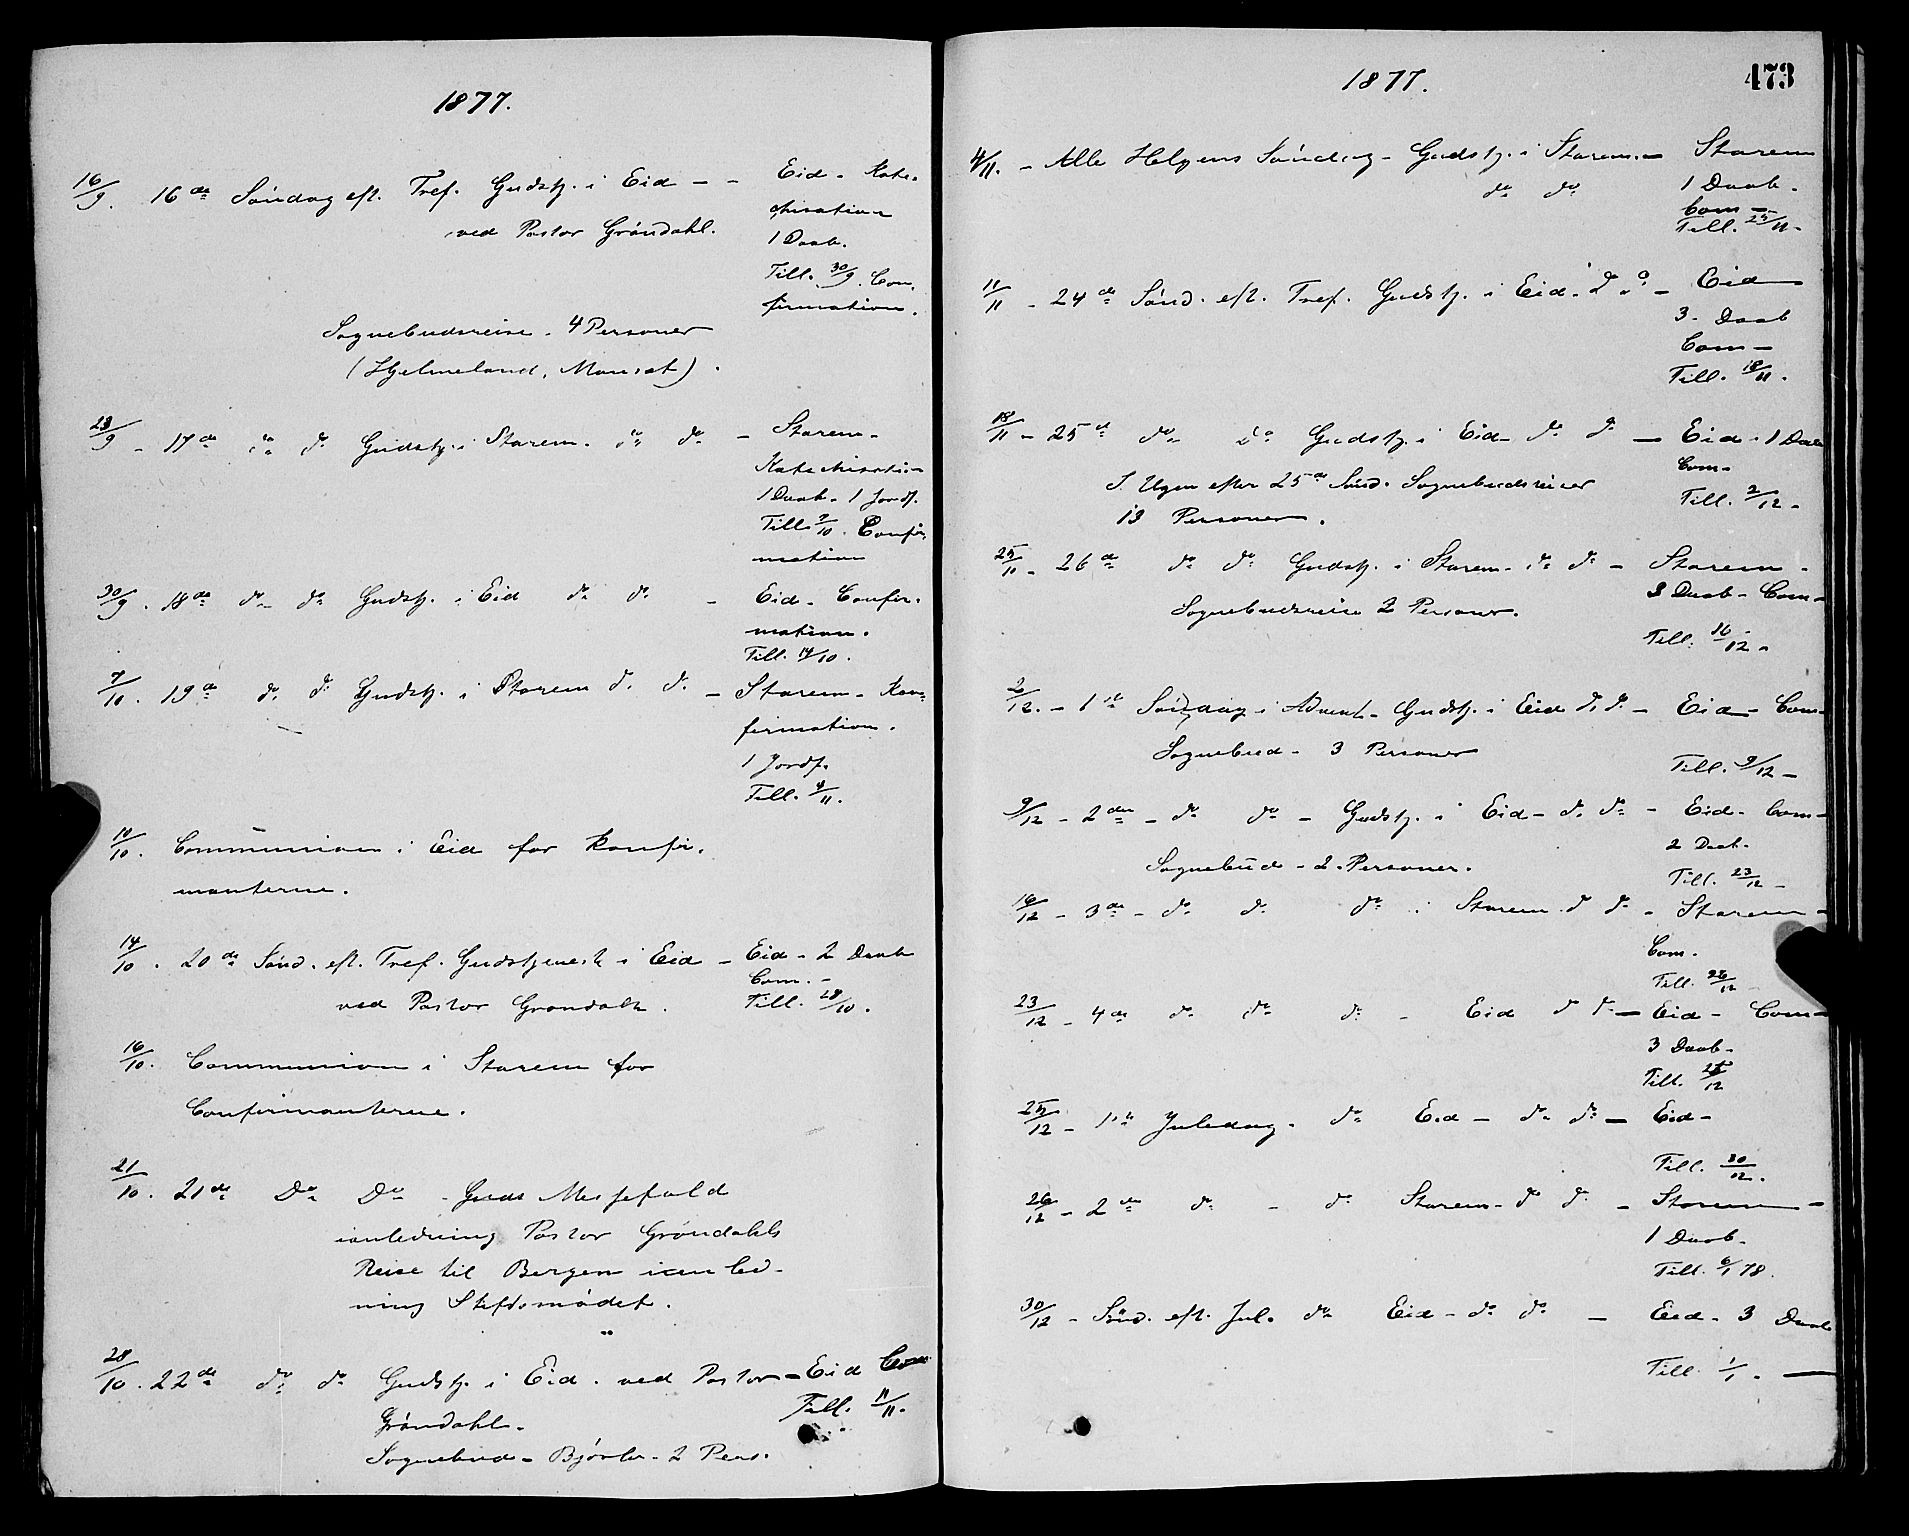 1877.
16/9. 16de Søndag eft. Tref. Gudstj. i Eid - - Eid - Kate-
chisation
ved Pastor Grøndahl.
1 Daab.
Till. 30/9. Con-
firmation.
Sognebudsreise - 4 Personer
(Hjelmeland, Maurset).
23/9 - 17de do do Gudstj. i Starem. do do - Starem -
Katechisation
1 Daab - 1 Jordf.
Till. 7/10. Confir-
mation
30/9. 18de do do Gudstj. i Eid do do - Eid - Confir-
mation.
Till. 14/10.
7/10. 19de do do Gudstj. i Starem do do - Starem - Kon-
firmation.
1 Jordf.
Till. 4/11.
10/10. Communion i Eid for Konfir-
manterne.
14/10. 20de Sønd. eft. Tref. Gudstjeneste i Eid - Eid - 2 Daab
Com. -
ved Pastor Grøndahl. Till. 28/10.
16/10. Communion i Starem for
Confirmanterne.
21/10. 21de Do Do - Guds Messefald
ianledning Pastor Grøndahls
Reise til Bergen ianled-
ning Stiftsmødet.
28/10. 22de do do Gudstj. i Eid. ved Pastor - Eid Com
Grøndahl. Till. 11/11.
Sognebud - Bjørlo - 2 Pers.
473
1877.
4/11. - Alle Helgens Søndag - Gudstj. i Starem. - Starem
do do 1 Daab.
Com -
Till. 25/11 -
11/11 - 24de Sønd. eft. Tref. Gudstj. i Eid. do do - Eid
3 - Daab
Com -
Till. 18/11.
18/11 - 25de do do Gudstj. i Eid - do do - Eid - 1 Daab
Com -
I Ugen efter 25de Sønd. Sognebudsreiser Till. 2/12 -
13 Personer.
25/11 - 26de do do Gudstj. i Starem - do do - Starem -
3 Daab - Com -
Sognebudsreise 2 Personer.
Till. 16/12 -
2/12. - 1ste Søndag i Advent - Gudstj. i Eid do do - Eid - Com -
Sognebud - 3 Personer
Till. 9/12 -
9/12 - 2den - do do - Gudstj. i Eid - do do - Eid - Com -
2 Daab.
Sognebud - 2 Personer.
Till. 23/12 -
16/12 - 3de - do do do i Starem do do - Starem -
Com.
Till. 26/12
23/12 - 4de do do do - Eid do do - Eid - Com -
3 Daab -
Till. 25/12
25/12 - 1ste Juledag. do Eid - do do - Eid -
Till. 30/12.
26/12 - 2den do - do Starem - do do - Starem -
1 Daab -
Till. 6/1 78.
30/12 - Sønd. eft. Jul. do Eid - do do - Eid - 3 Daab
Till. 1/1. -